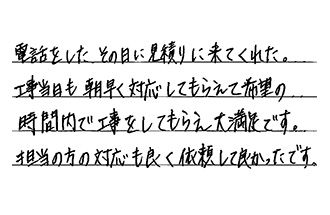 電話をした、その日に見積りに来てくれた。
工事当日も朝早く対応してもらえて希望の
時間内で工事をしてもらえ大満足です。
担当の方の対応も良く依頼して良かったです。